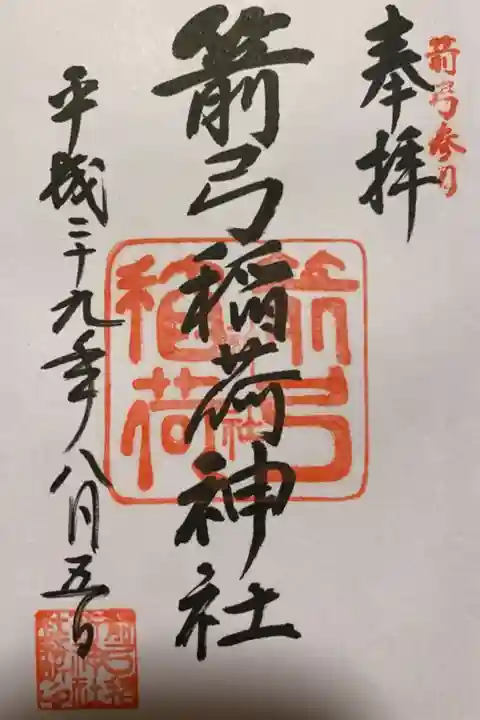 奉拝
箭弓稲荷神社
平成二十九年八月五日
箭弓
稲荷